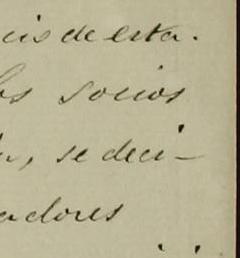 cis de esta.
los socios
se deci-
adores